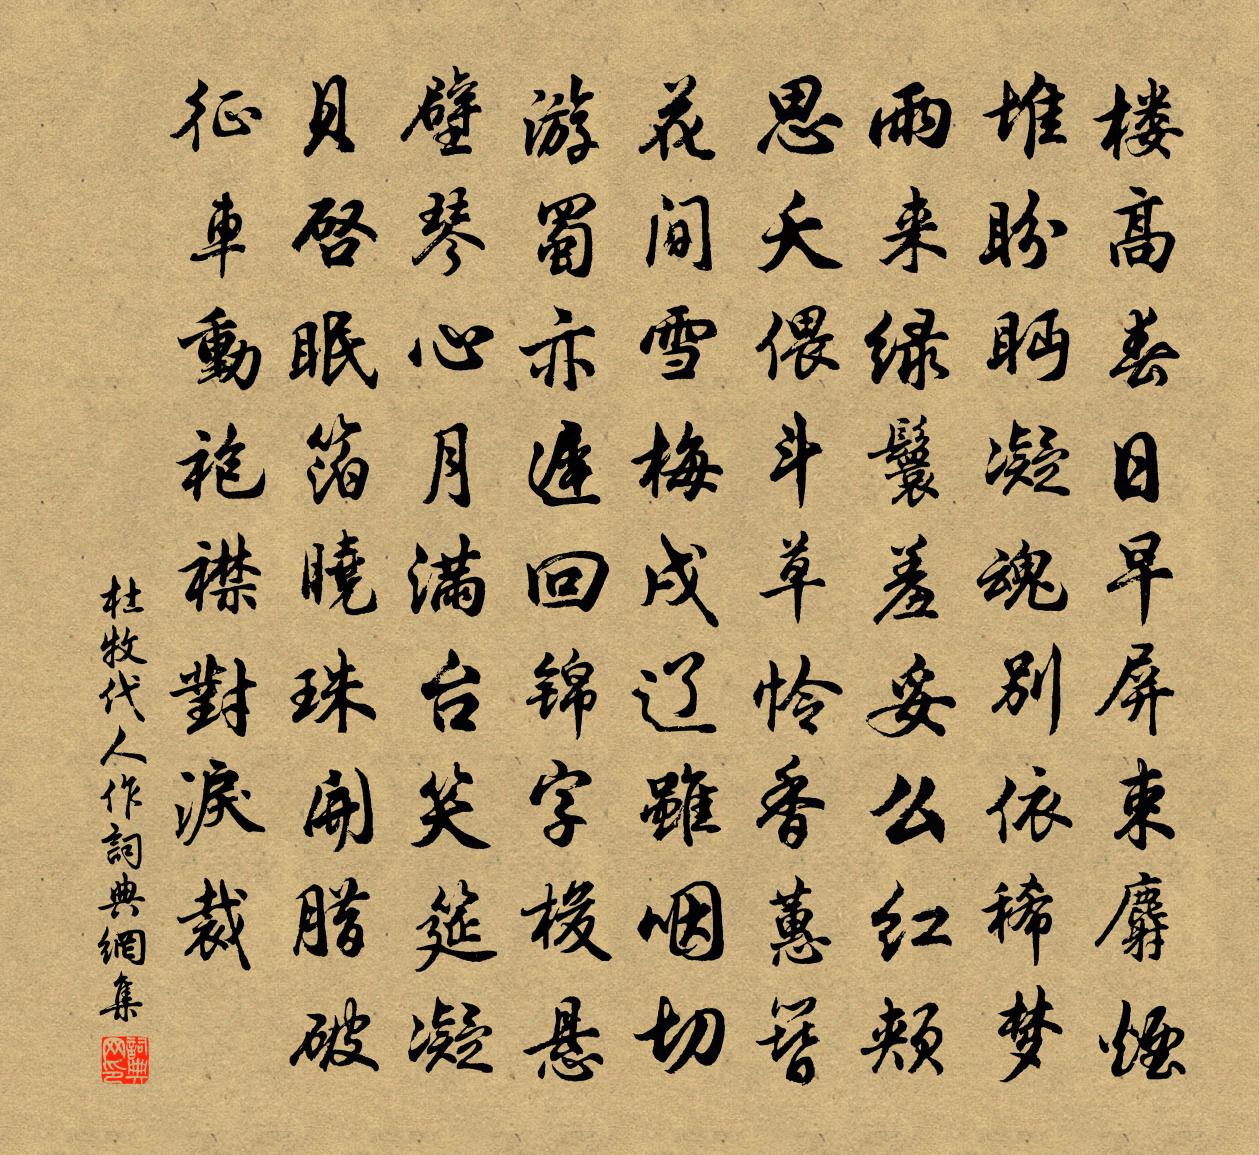 楼高春日早屏束麝煙
堆盼眄凝魂别依稀梦
雨来绿鬟羞妥么红颊
思夭偎斗草怜香蕙簪
花间雪梅戍辽雖咽切
游蜀亦遅回锦字梭悬
壁琴心月满台笑筵凝
貝启眠箔曉珠開腊破
征車動袍襟對淚裁
杜牧代人作詞典網集
詞典网印